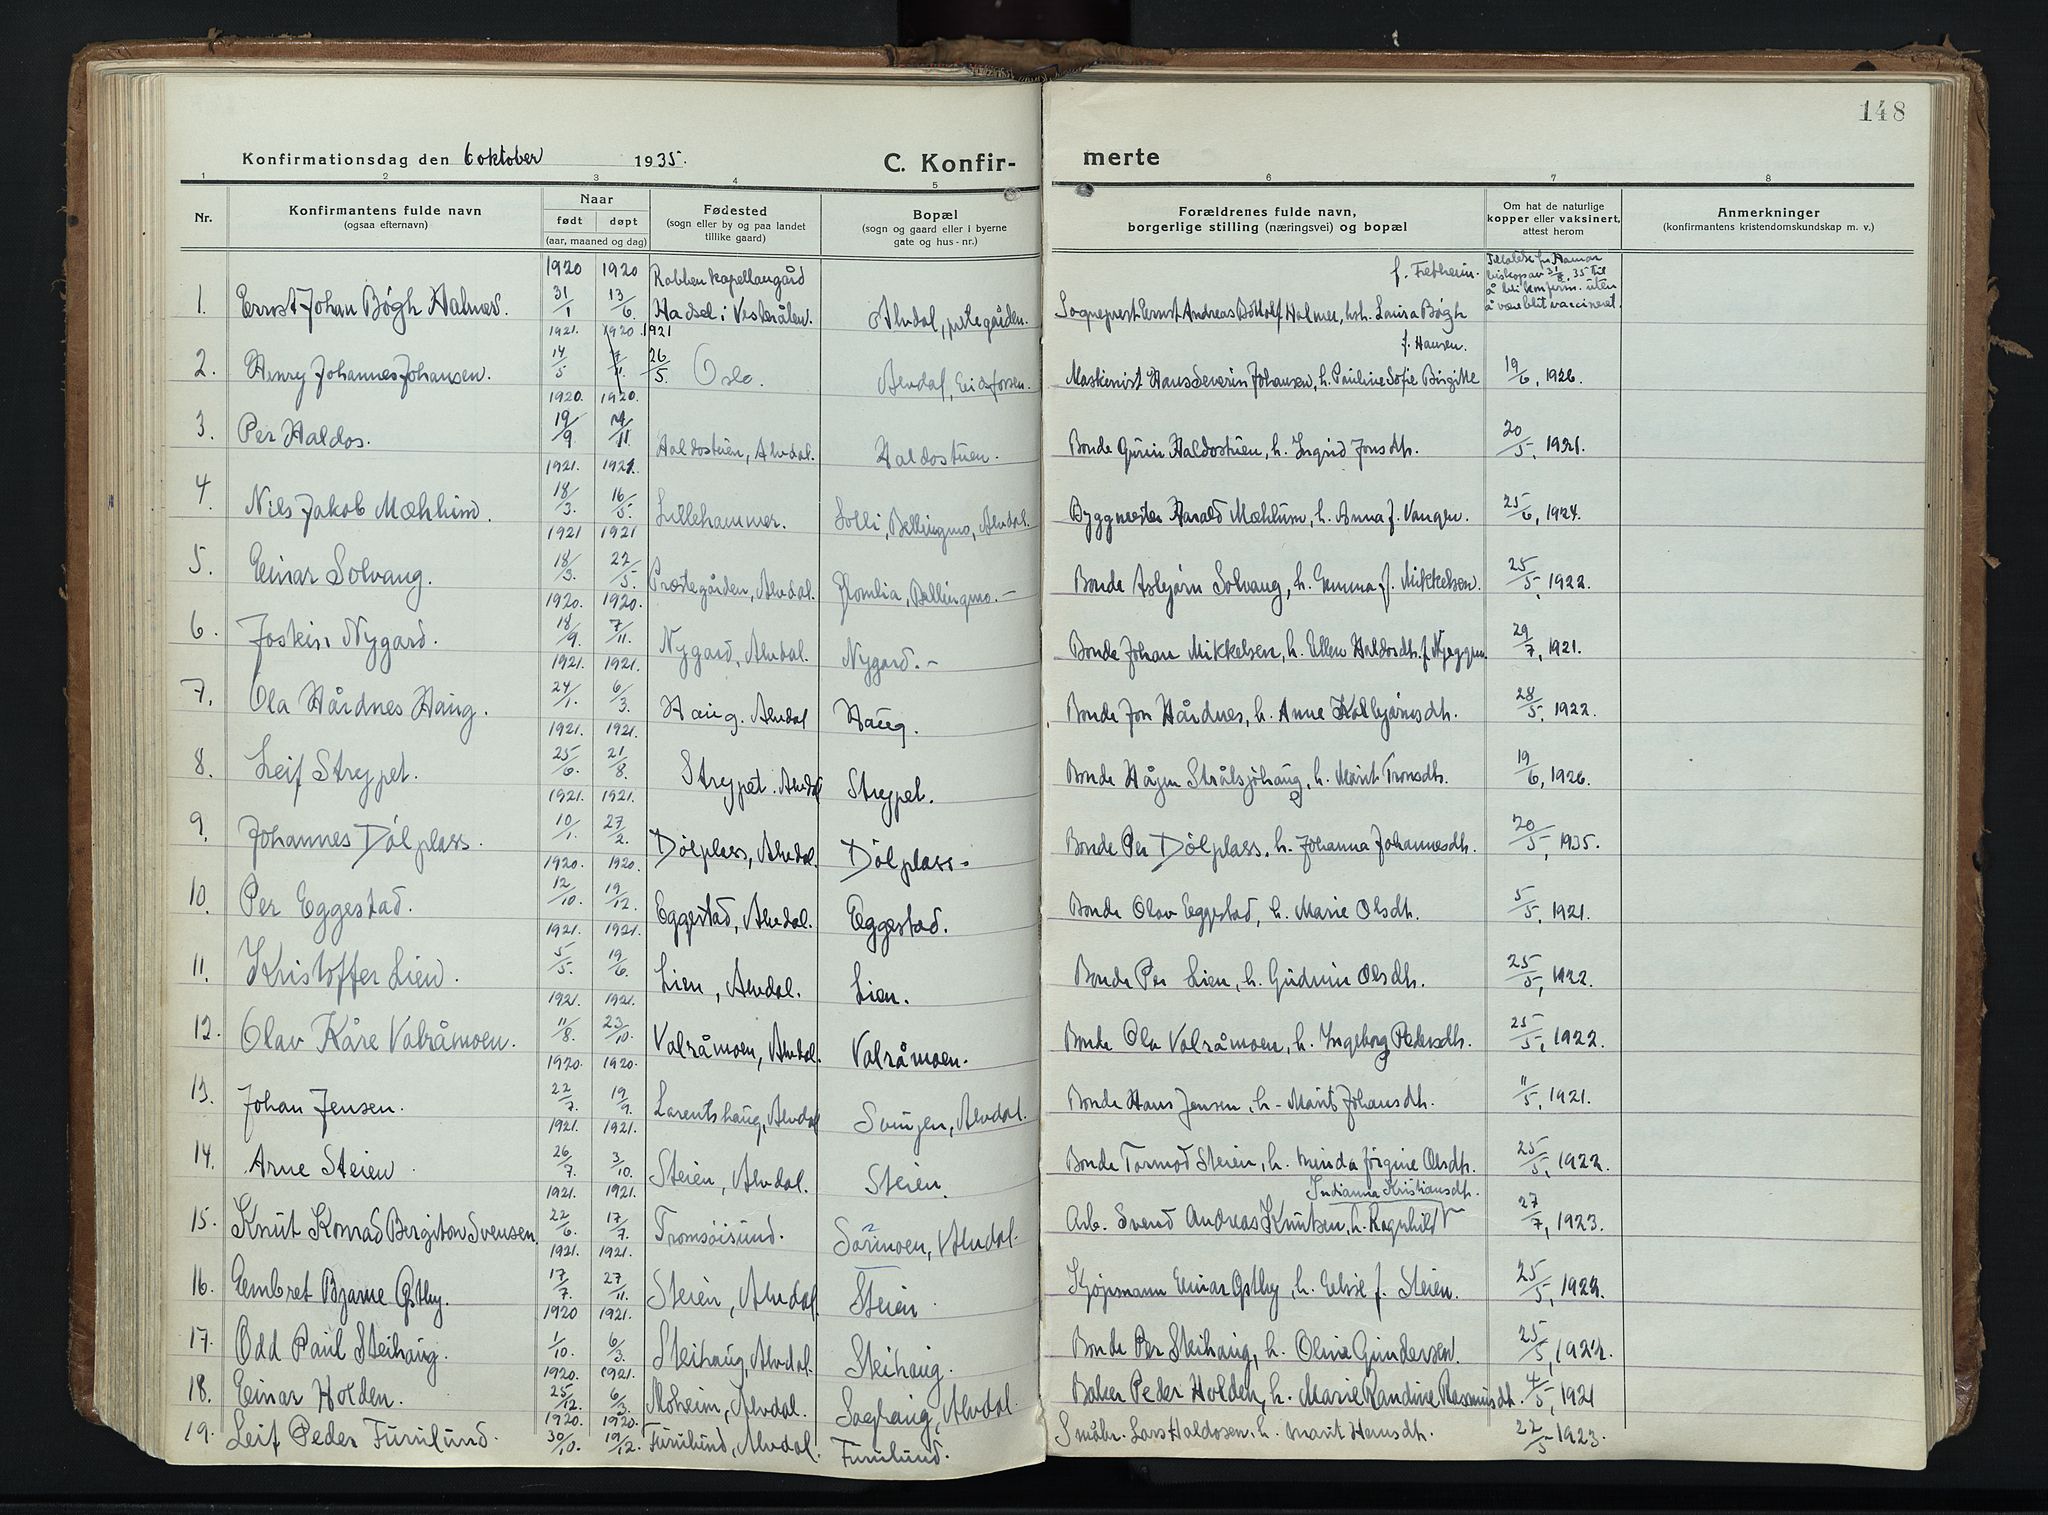 148
Konfirmationsdag den 6 oktober 1935. C. Konfir- merte
1 2 3 4 5 6 7 8
Nr. Konfirmantens fulde navn (ogsaa efternavn) Naar født døpt (aar, maaned og dag) Fødested (sogn eller by og paa landet tillike gaard) Bopæl (sogn og gaard eller i byerne gate og hus-nr.) Forældrenes fulde navn, borgerlige stilling (næringsvei) og bopæl Om hat de naturlige kopper eller vaksinert, attest herom Anmerkninger (konfirmantens kristendomskundskap m. v.)
1920 1920 Robben kapellangård f. Fietheim. Tillatelse fr. Hamar biskop av 31/8 35 til å bli konfirm. uten å være blit vaccineret.
1. Ernst Johan Bøgh Halmer. 31/1 13/6 Hadsel i Vesterålen. Alvdal, prestegården. Sogneprest Ernst Andreas Halmer, Laura Bøgh
1921. 1920. 1921 f. Hansen.
2. Henry Johannes Johansen. 14/5 7/11 26/5 Oslo. Alvdal, Eidsfossen. Maskinist Hans Severin Johansen, h. Pauline Sofie Birgitte 19/6, 1926.
1920. 1920.
3. Per Haldos. 19/9 21/11 Haldostuen, Alvdal. Haldostuen. Bonde Haldostuen, h. Ingrid Jonsdh. 20/5, 1921.
1921. 1921.
4. Nils Jakob Mæhlum. 18/3. 16/5. Lillehammer. Solli, Bellingmo, Alvdal. Byggmester Harald Mæhlum, h. Anna f. Vangen. 25/6, 1924.
1921 1921
5. Einar Solvang. 18/3. 22/5. Præstegården, Alvdal. Glomlia, Bellingmo. – Bonde Asbjørn Solvang, h. Emma f. Mikkelsen. 25/5, 1922.
1920. 1920.
6. Jostein Nygard. 18/9. 7/11. Nygard, Alvdal. Nygard. – Bonde Johan Mikkelsen, h. Ellen Haldosdh. f. 29/7, 1921.
1921. 1921.
7. Ola Hårdnes Haug. 24/1. 6/3. Haug. Alvdal Haug. Bonde Jon Hårdnes, h. Anne Kolbjørnsdh. 28/5, 1922.
1921. 1921.
8. Leif Strypet. 25/6. 21/8. Strypet. Alvdal Strypet. Bonde Hågen Strålsjøhaug, h. Marit Tronsdh. 19/6, 1926.
1921. 1921.
9. Johannes Dølplass. 10/1. 27/2. Dølplass, Alvdal. Dølplass. Bonde Per Dølplass, h. Johanna Johannesdh. 20/5, 1935.
1920. 1920.
10. Per Eggestad. 12/10. 19/12. Eggestad, Alvdal. Eggestad. Bonde Olav Eggestad, h. Marie Olsdh. 5/5, 1921.
1921. 1921.
11. Kristoffer Lien. 5/5. 19/6. Lien, Alvdal. Lien. Bonde Per Lien, h. Gudrun Olsdh. 25/5, 1922.
1921. 1921.
12. Olav Kåre Valråmoen. 11/8. 23/10. Valråmoen, Alvdal. Valråmoen. Bonde Ola Valråmoen, h. Ingeborg Pedersdh. 25/5, 1922.
1920. 1920.
13. Johan Jensen. 22/7. 19/9. Larentshaug, Alvdal Svingen, Alvdal. Bonde Hans Jensen, h. - Marit Johansdh. 11/5, 1921.
1921. 1921.
14. Arne Steien. 26/7. 3/10. Steien, Alvdal. Steien. Bonde Tormod Steien, h. Minda Jørgine Olsdh. 25/5, 1922.
1921. 1921. Indianna Kristiansdh.
15. Knut Konrad Bergiton Svensen. 22/6. 17/7. Tromsøisund. Sørmoen, Alvdal. Arb. Svend Andreas Knutsen, h. Ragnhild 27/7, 1923.
1921. 1921.
16. Embret Bjarne Østby. 17/7. 27/11. Steien, Alvdal Steien. Kjøpmann Einar Østby, h. Elise f. Steien. 25/5, 1922.
1920 1921.
17. Odd Paul Steihaug. 1/10. 6/3. Steihaug, Alvdal. Steihaug. Bonde Per Steihaug, h. Olina Gundersen. 25/5, 1922.
1920. 1921.
18. Einar Holden. 25/12. 6/3. Moheim, Alvdal. Saghaug, Alvdal. Baker Peder Holden, h. Marie Randine Rasmusdh. 4/5, 1921
1920. 1920.
19. Leif Peder Furulund. 30/10. 19/12. Furulund, Alvdal. Furulund. Småbr. Lars Haldosen, h. Marit Hansdh. 22/5 1923.